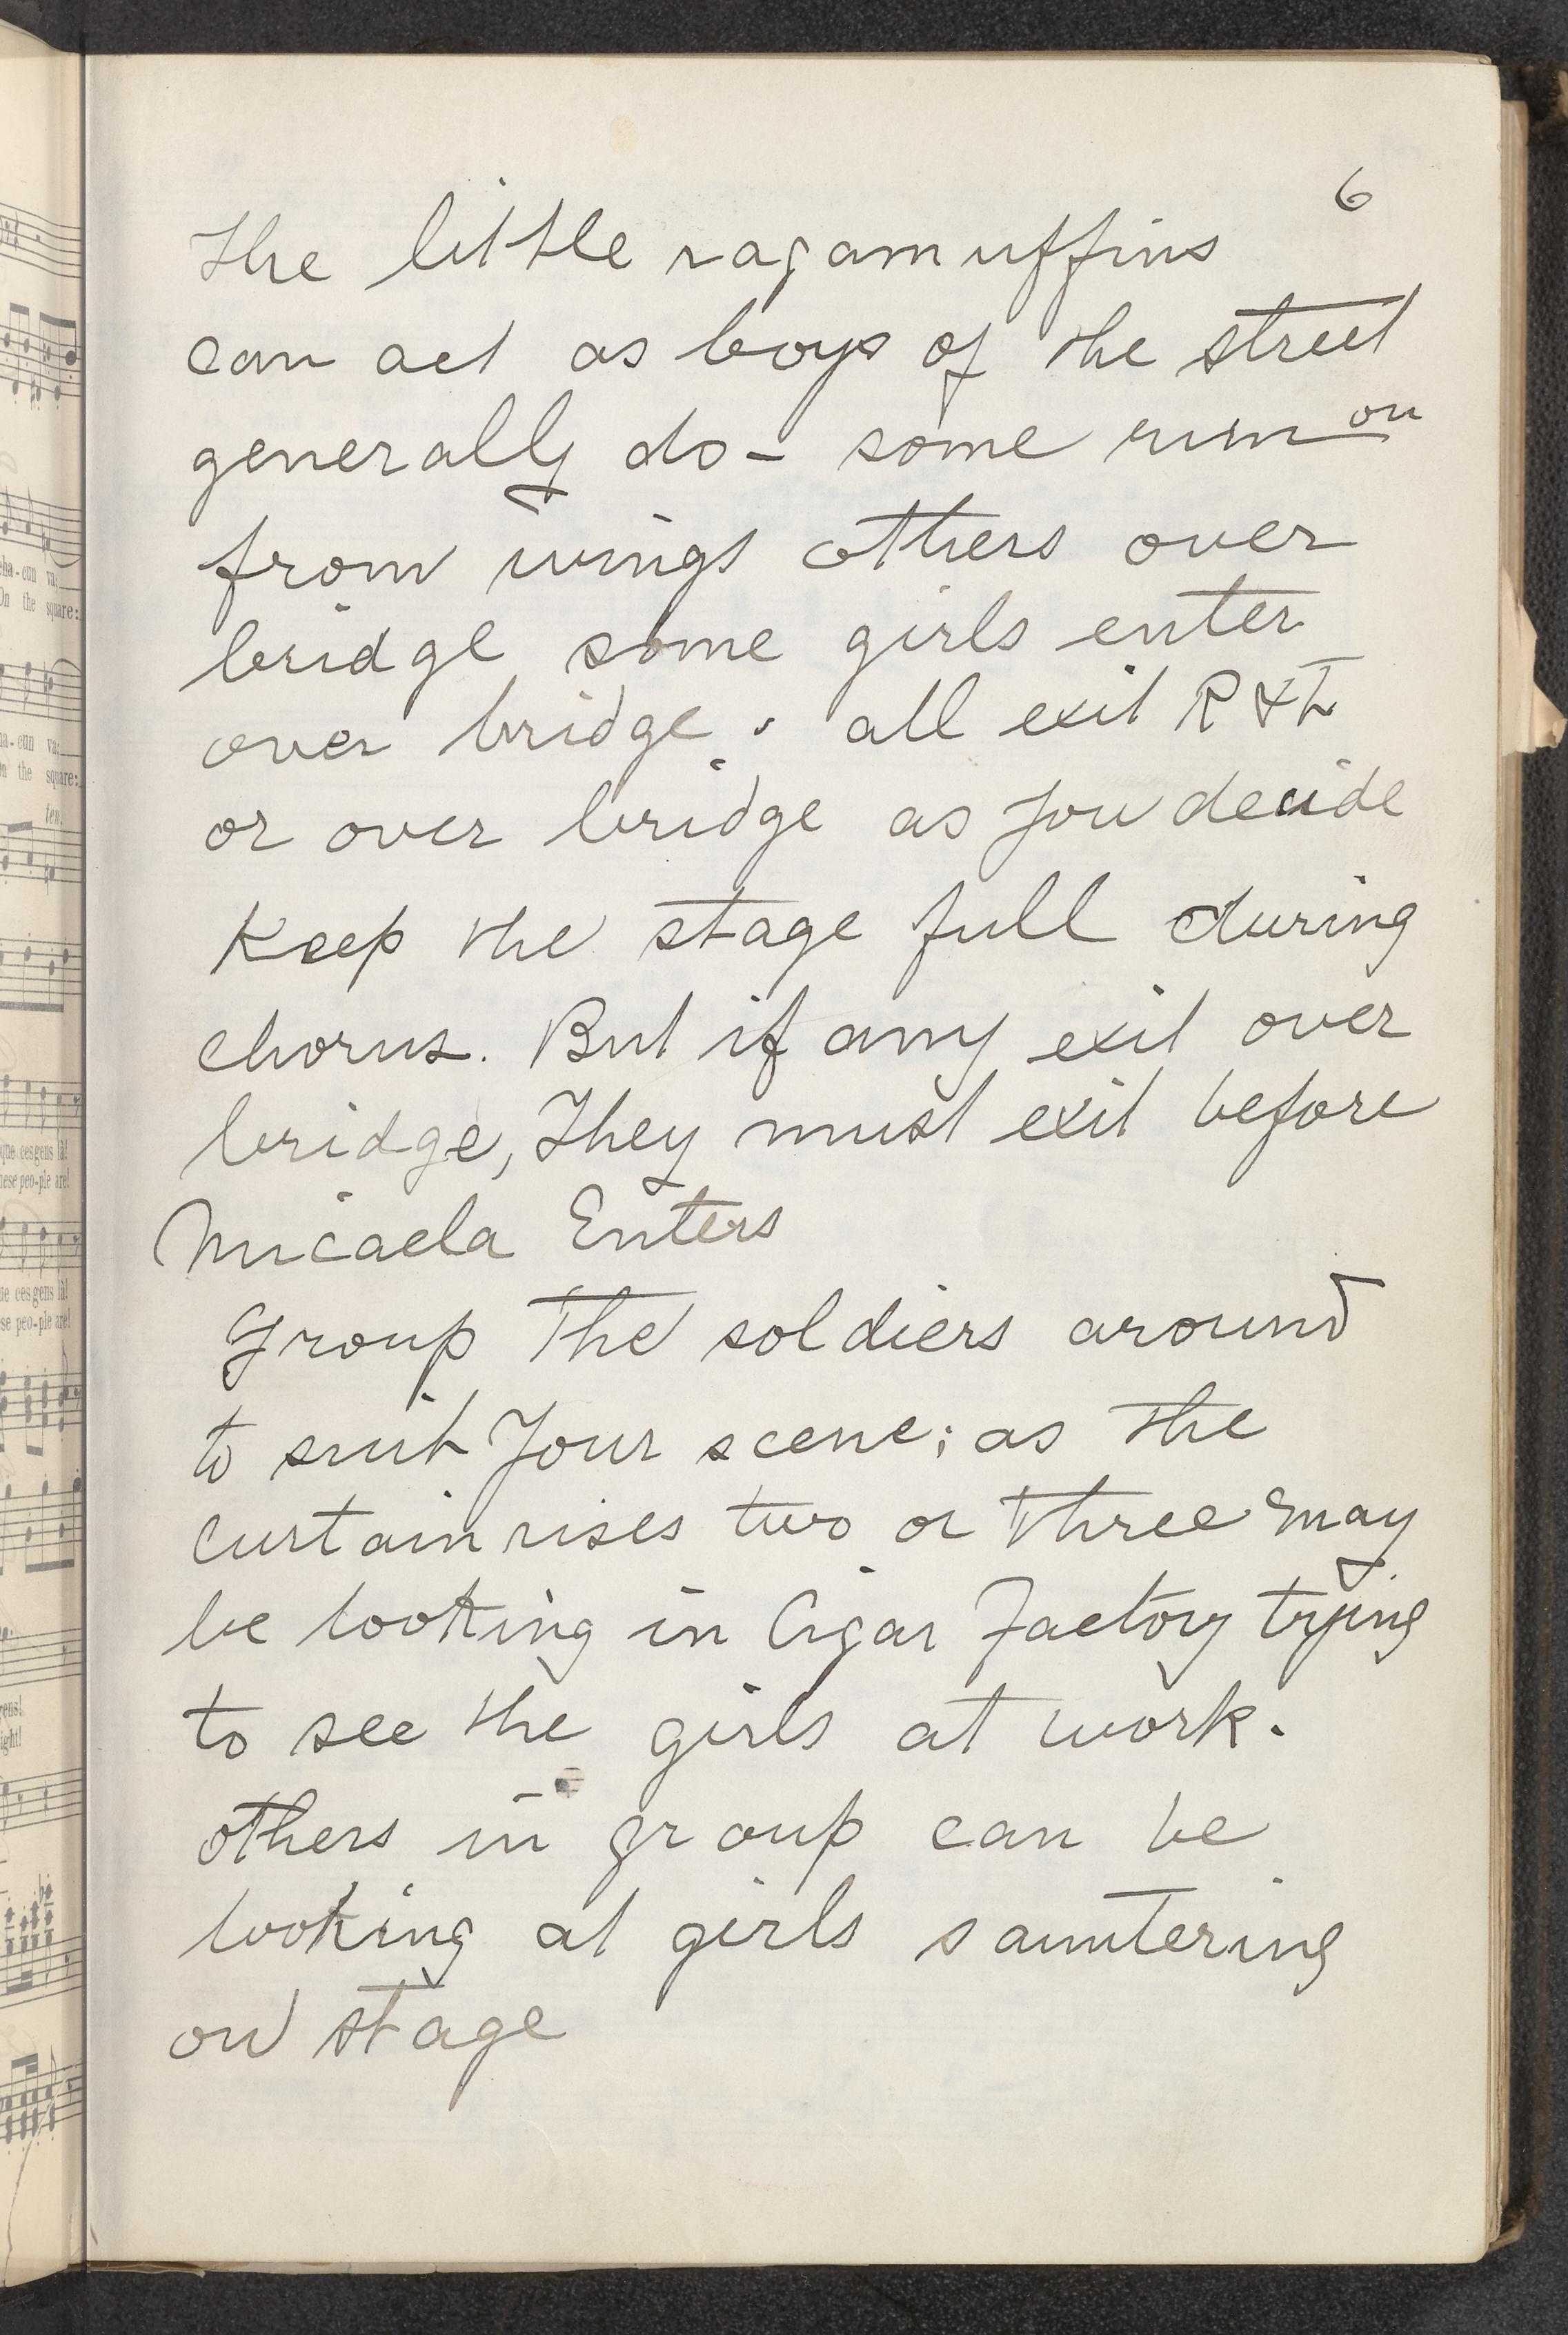 6
The little ragamuffins
can act as boys of the street
generally do - some run on
from wings others over
bridge some girls enter
over bridge. all exit R & L
or over bridge as you decide
Keep the stage full during
chorus. But if any exit over
bridge, They must exit before
Micaela Enters
Group The soldiers around
to suit Your scene; as the
Curtain rises two or three may
be looking in Cigar Factory trying
to see the girls at work.
others in group can be
looking at girls sauntering
on stage
cha-cun va;
On the square:
cun va;
the square:
ten.
que ces gens là!
these peo-ple are!
que ces gens là!
peo-ple are!
gens!